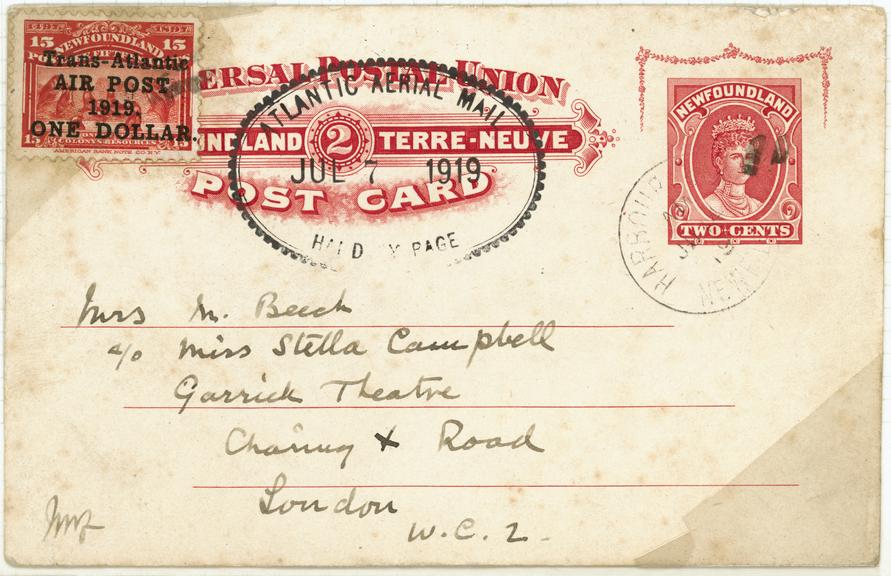 1497 1897
15 NEWFOUNDLAND 15
Trans-Atlantic
AIR POST,
1919.
ONE DOLLAR.
AMERICAN BANK NOTE CO. N.Y.
ERSAL POSTAL UNION
ATLANTIC AERIAL MAIL
NDLAND 2 TERRE-NEUVE
JUL 7 1919
POST CARD
PAGE
NEWFOUNDLAND
TWO CENTS
HARBOUR
Mrs M. Beech
c/o Miss Stella Campbell
Garrick Theatre
Charing X Road
London
W.C. 2.